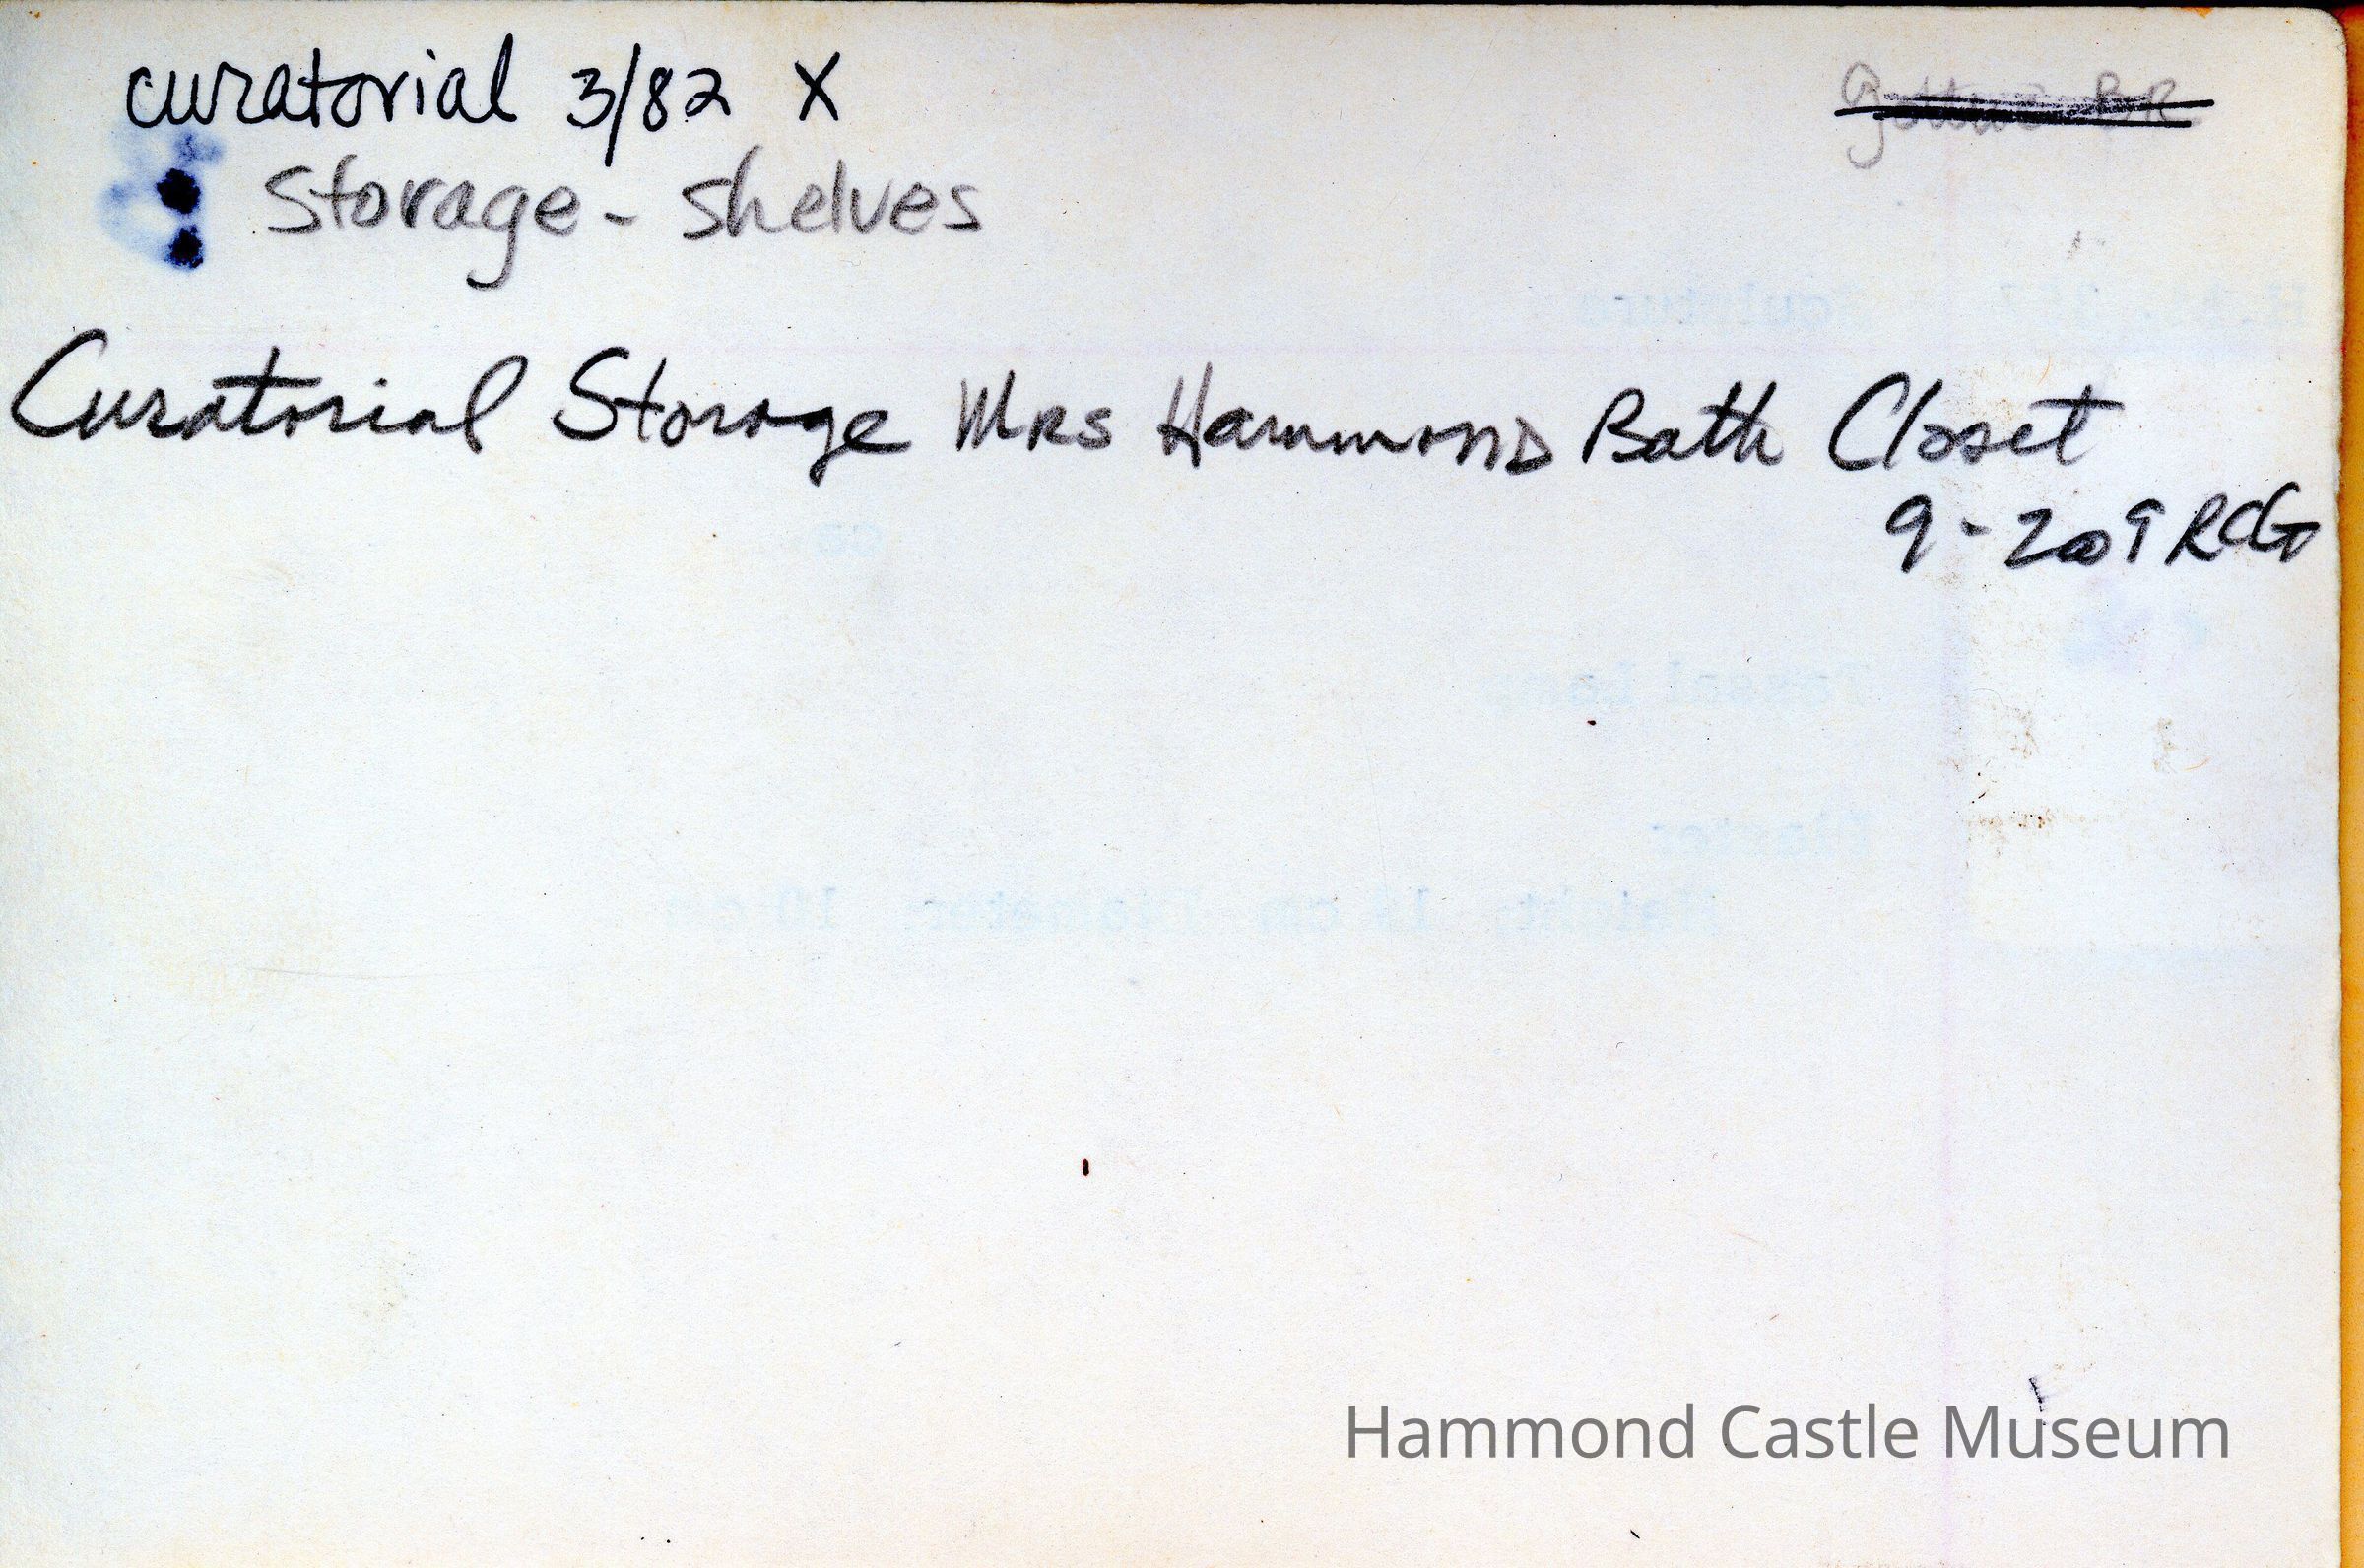 curatorial 3/82 X
Storage - Shelves
Curatorial Storage Mrs Hammond Bath Closet
9-2009 RCG
Hammond Castle Museum